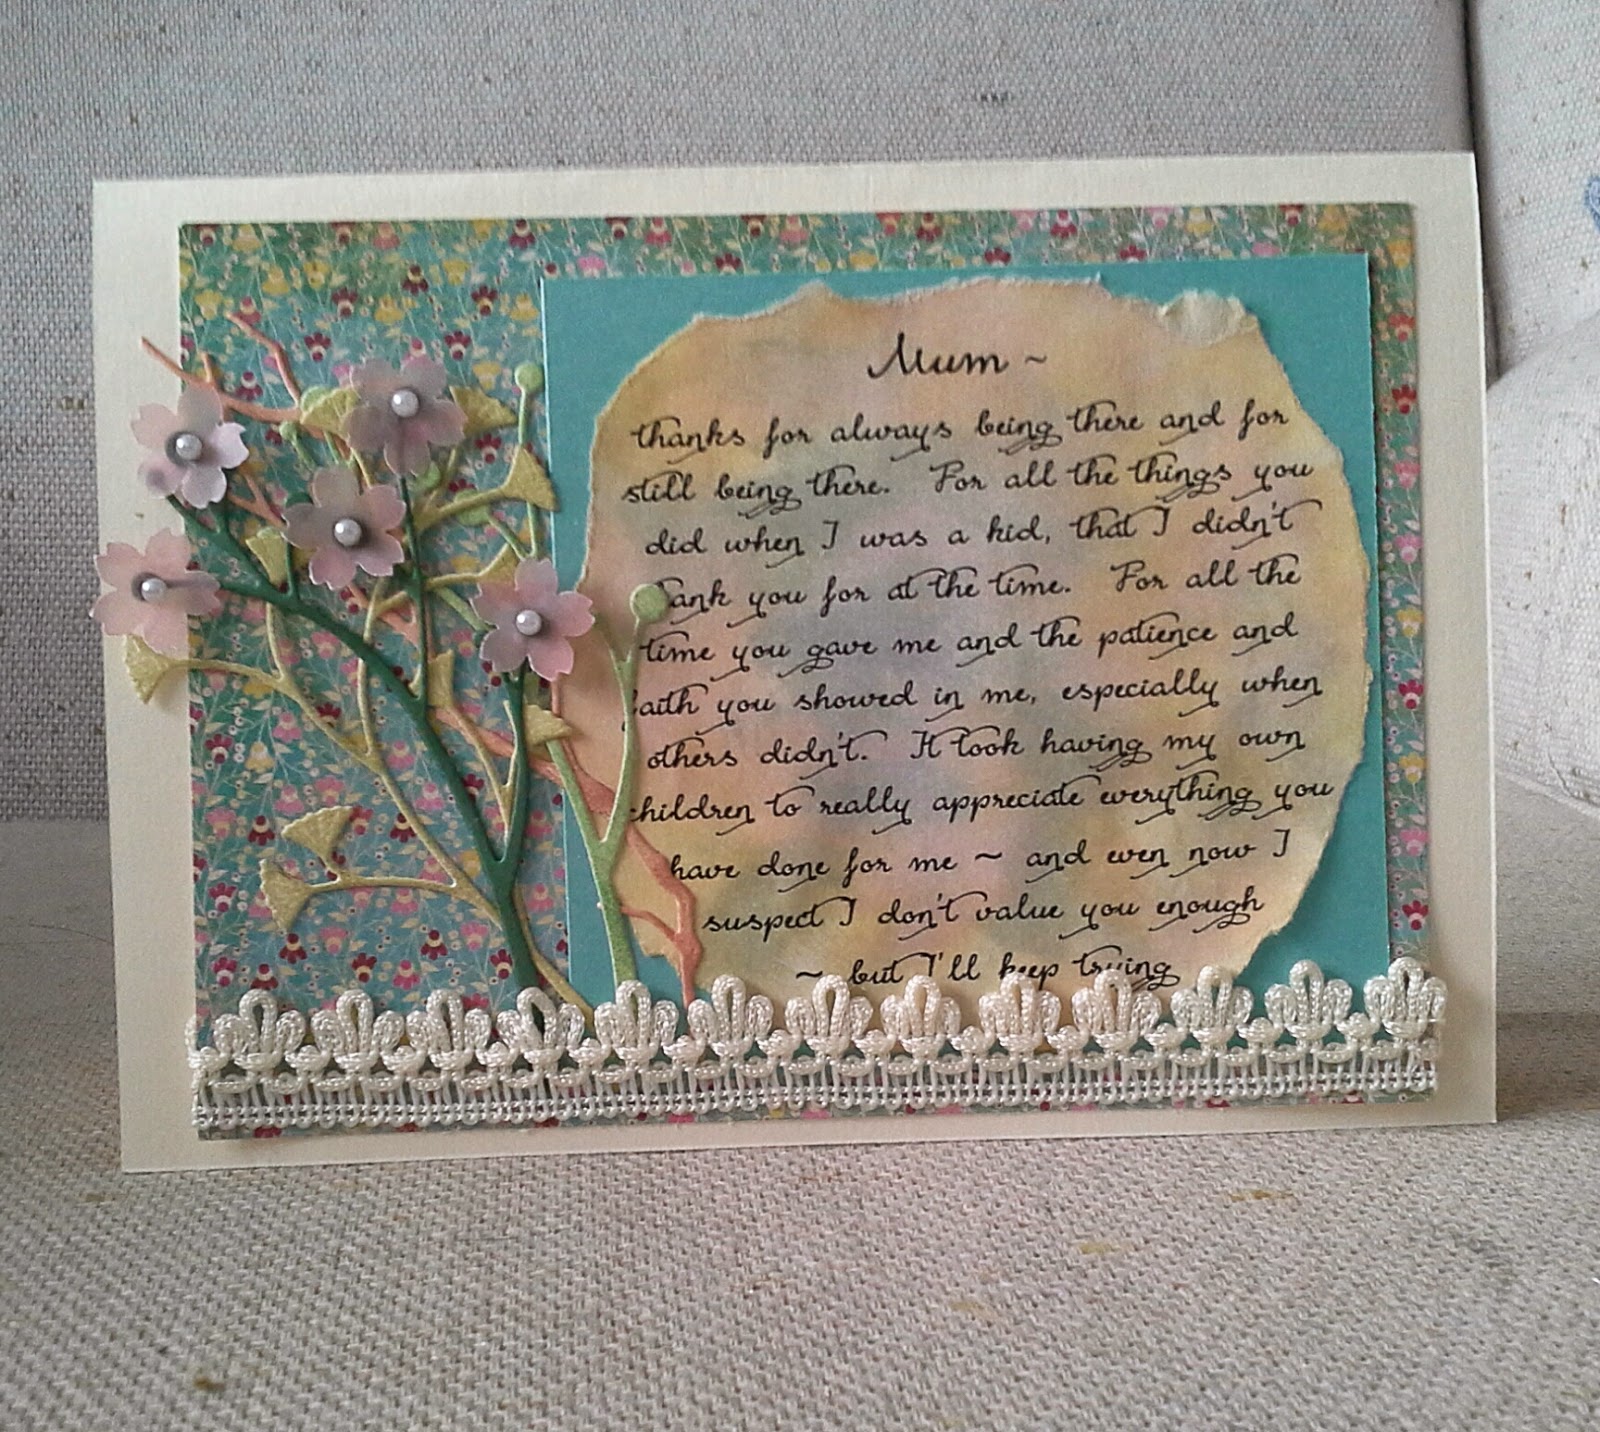 Mum ~
thanks for always being there and for
still being there. For all the things you
did when I was a kid, that I didn't
thank you for at the time. For all the
time you gave me and the patience and
faith you showed in me, especially when
others didn't. It took having my own
children to really appreciate everything you
have done for me ~ and even now I
suspect I don't value you enough
~ but I'll keep trying